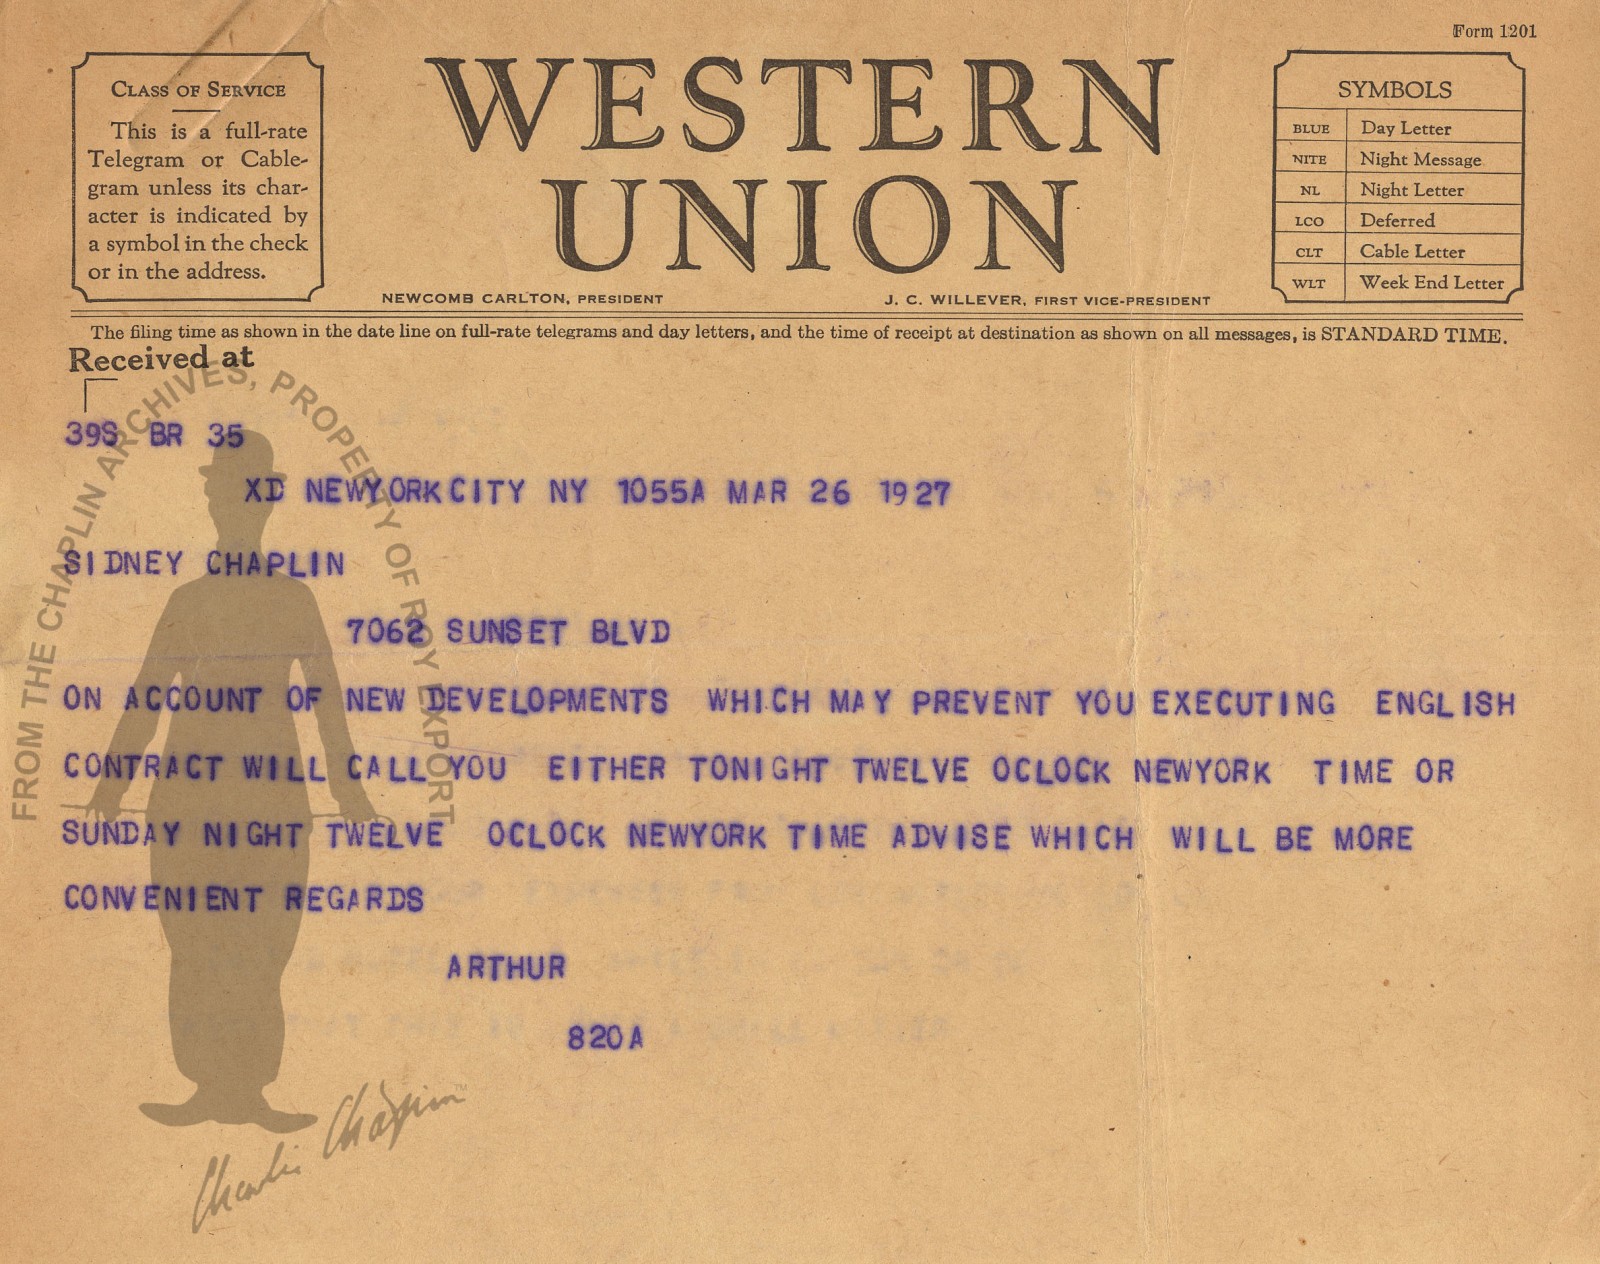 Form 1201
CLASS OF SERVICE
This is a full-rate
Telegram or Cable-
gram unless its char-
acter is indicated by
a symbol in the check
or in the address.
WESTERN
UNION
NEWCOMB CARLTON, PRESIDENT
J. C. WILLEVER, FIRST VICE-PRESIDENT
SYMBOLS
BLUE Day Letter
NITE Night Message
NL Night Letter
LCO Deferred
CLT Cable Letter
WLT Week End Letter
The filing time as shown in the date line on full-rate telegrams and day letters, and the time of receipt at destination as shown on all messages, is STANDARD TIME.
Received at
39S BR 35
XD NEWYORK CITY NY 1055A MAR 26 1927
SIDNEY CHAPLIN
7062 SUNSET BLVD
ON ACCOUNT OF NEW DEVELOPMENTS WHICH MAY PREVENT YOU EXECUTING ENGLISH
CONTRACT WILL CALL YOU EITHER TONIGHT TWELVE OCLOCK NEWYORK TIME OR
SUNDAY NIGHT TWELVE OCLOCK NEWYORK TIME ADVISE WHICH WILL BE MORE
CONVENIENT REGARDS
ARTHUR
820A
FROM THE CHAPLIN ARCHIVES, PROPERTY OF ROY EXPORT
Charlie Chaplin™